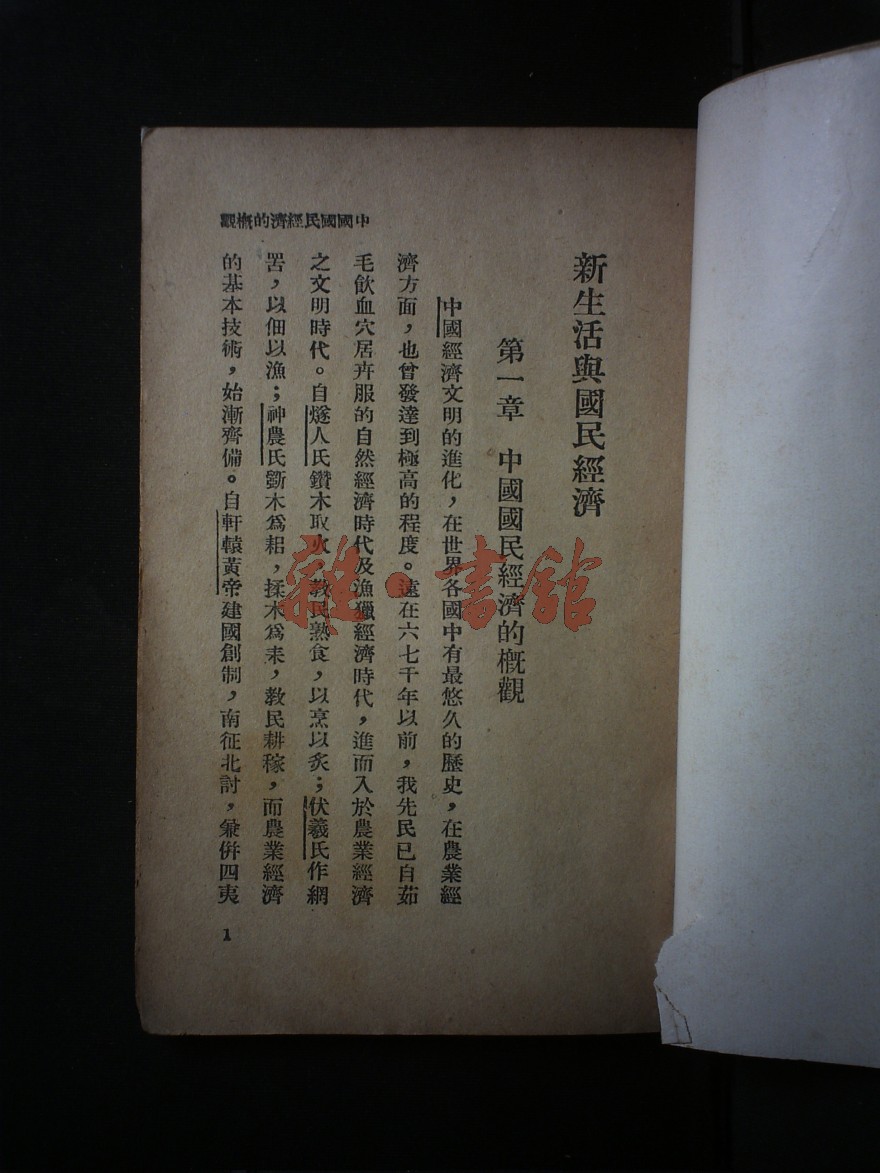 新生活與國民經濟
第一章　中國國民經濟的概觀
中國經濟文明的進化，在世界各國中有最悠久的歷史，在農業經
濟方面，也曾發達到極高的程度。遠在六七千年以前，我先民已自茹
毛飲血穴居卉服的自然經濟時代及漁獵經濟時代，進而入於農業經濟
之文明時代。自燧人氏鑽木取火，教民熟食，以烹以炙；伏羲氏作網
罟，以佃以漁；神農氏斵木爲耜，揉木爲耒，教民耕稼，而農業經濟
的基本技術，始漸齊備。自軒轅黃帝建國創制，南征北討，兼併四夷
中國國民經濟的概觀
1
雜·書館